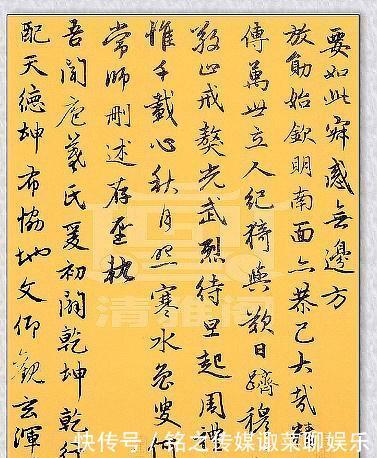 要如此寂感無邊方
放勛始欽明南面亦恭己大哉精
傳萬世立人紀猗與歎日躋穆
敬止戒獒光武烈待旦起周禮
惟千載心秋月照寒水魯叟何
常師刪述存聖軌
吾聞庖羲氏爰初闢乾坤乾行
配天德坤布協地文仰觀玄渾
清雅阁
快传号/铭之传媒诹菜聊娱乐